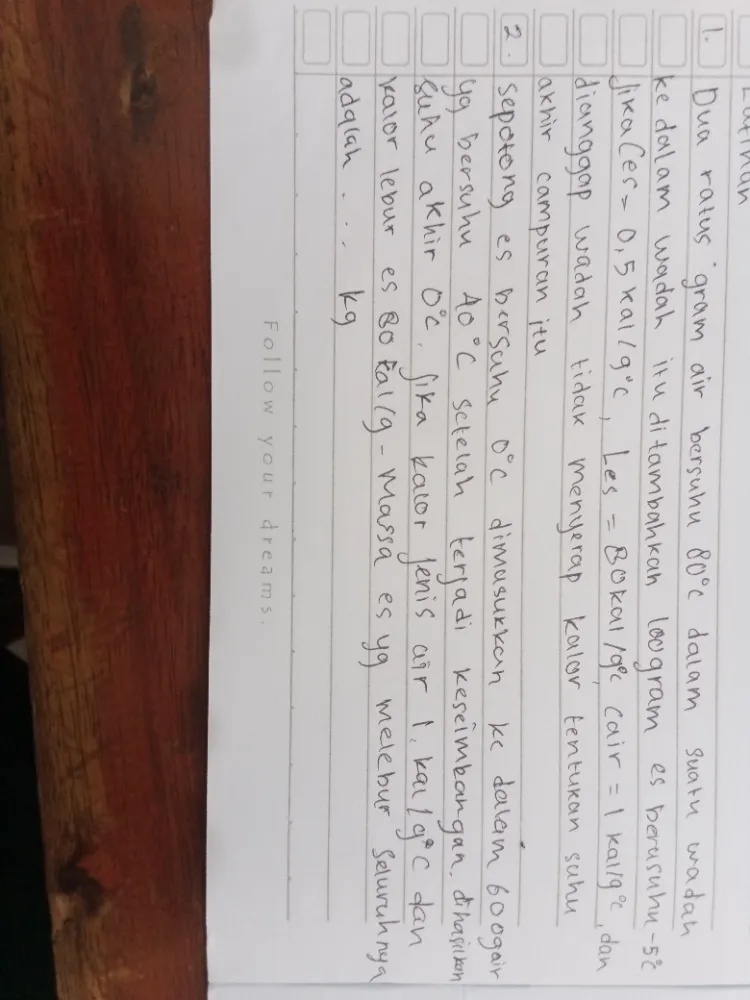 Latihan
1. Dua ratus gram air bersuhu 80°C dalam suatu wadah
ke dalam wadah itu ditambahkan 100 gram es berusuhu -5°C
Jika Ces = 0,5 kal/g°C, Les = 80 kal/g°C, Cair = 1 kal/g°C, dan
dianggap wadah tidak menyerap kalor tentukan suhu
akhir campuran itu
2. Sepotong es bersuhu 0°C dimasukkan ke dalam 600 gair
yg bersuhu 40°C setelah terjadi keseimbangan, dihasilkan
suhu akhir 0°C, jika kalor jenis air 1, kal/g°C dan
kalor lebur es 80 kal/g - Massa es yg melebur seluruhnya
adalah . . . kg
Follow your dreams.